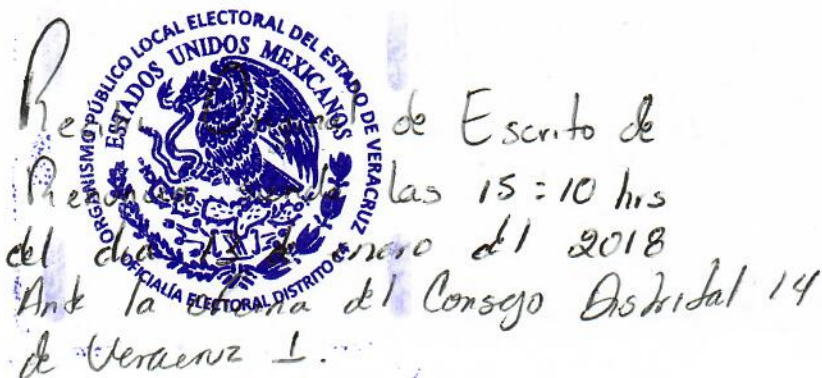 ORGANISMO PÚBLICO LOCAL ELECTORAL DEL ESTADO DE VERACRUZ
ESTADOS UNIDOS MEXICANOS
OFICIALIA ELECTORAL DISTRITO
de Escrito de
las 15:10 hrs
del dia de enero del 2018
Ante la del Consejo Distrital 14
de Veracruz 1.